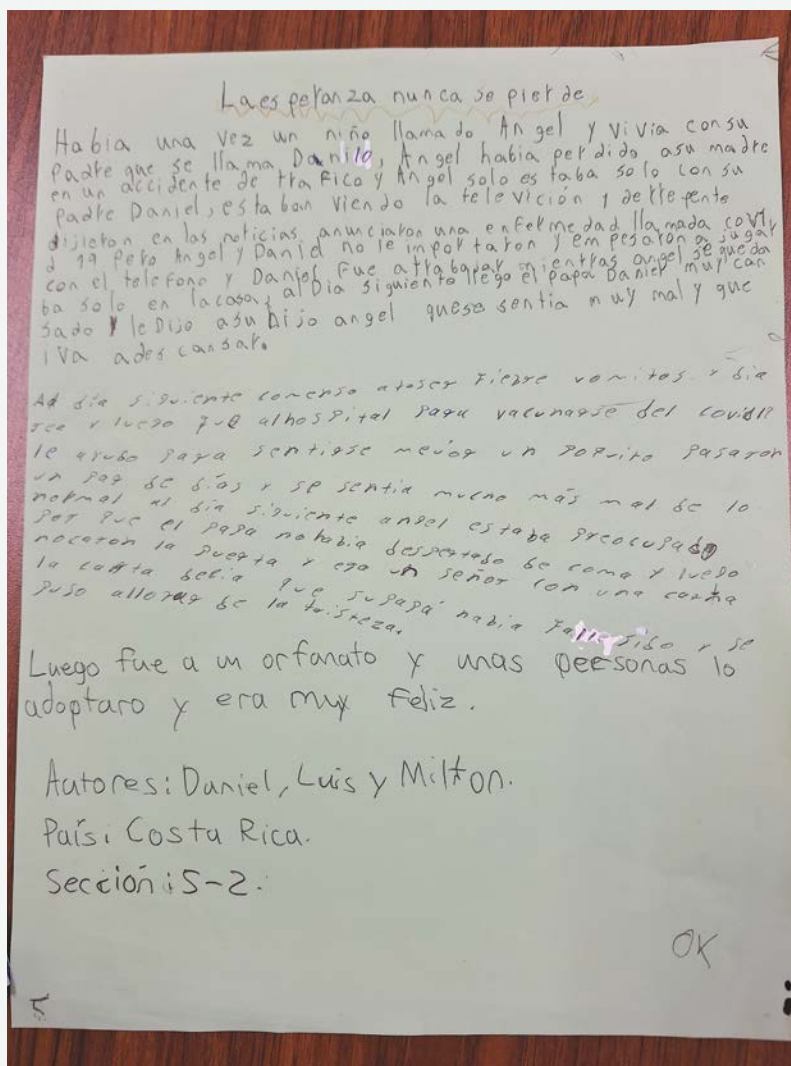 La esperanza nunca se pierde
Habia una vez un niño llamado Angel y vivia consu
Padre que se llama Danilo, Angel habia perdido asu madre
en un accidente de trafico y Angel solo estaba solo con su
padre Daniel, estaban viendo la televición y derrepente
dijieron en las noticias anunciaron una enfermedad llamada covi
d 19 Pero Angel y Daniel no le importaron y empesaron a jugar
con el telefono y Daniel fue atrabajar mientras angel se queda
ba solo en lacasa, al Dia siguiente llego el papa Daniel muy can
sado y le Dijo asu hijo angel quese sentia muy mal y que
iva adescansar.
Ad día siguiente comenso atoser Fiebre vomitos y dia
rea y luego fue alhospital para vacunarse del covid19
le ayudo para sentirse mejor un poquito pasaron
un par de días y se sentia mucho más mal de lo
normal al día siguiente angel estaba preocupado
por que el papa nohabia despertado de coma y luego
nocaron la puerta y era un señor con una carta
la carta decia que supapá habia fallersido y se
puso allorar de la tristeza.
Luego fue a un orfanato y unas personas lo
adoptaro y era muy feliz.
Autores: Daniel, Luis y Milton.
País: Costa Rica.
Sección: 5-2.
OK